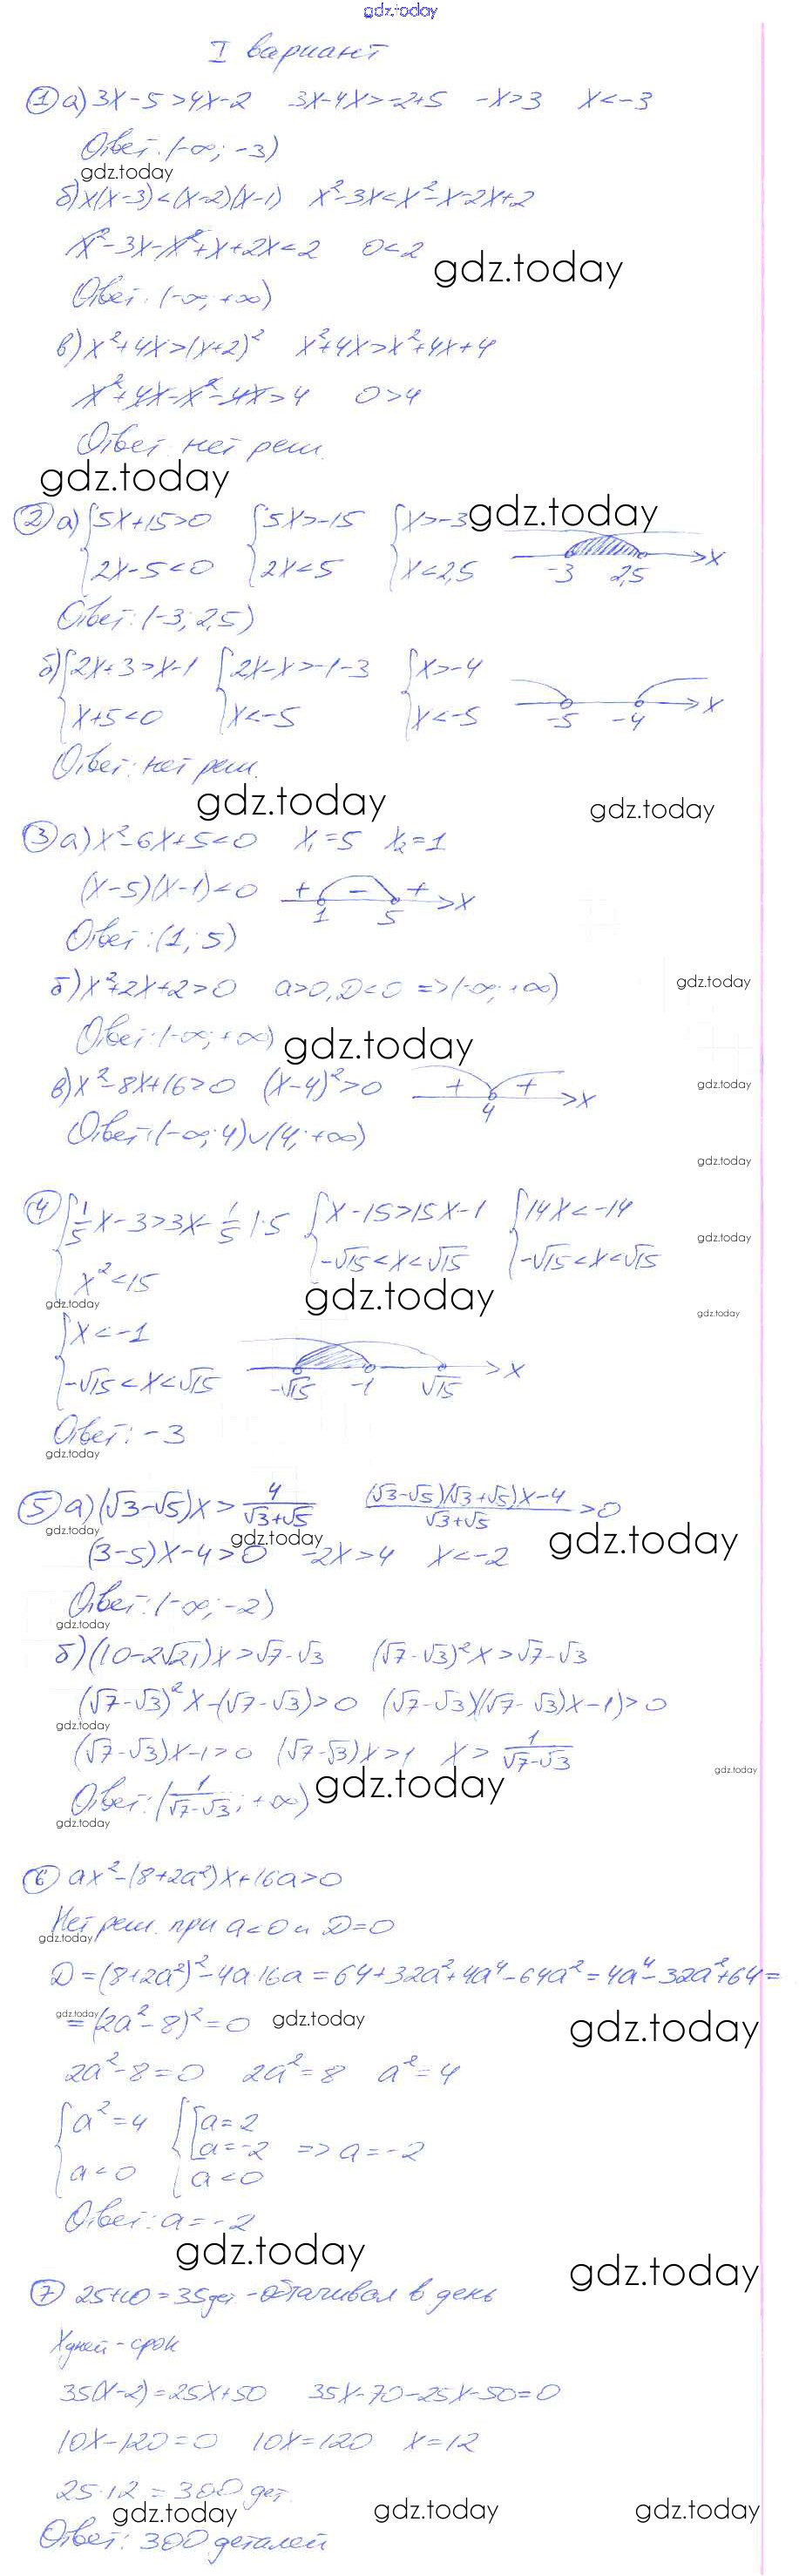 gdz.today
I вариант
① а) 3x-5>4x-2 3x-4x>-2+5 -x>3 x<-3
Ответ: (-∞; -3)
gdz.today
б) x(x-3)<(x-2)(x-1) x²-3x<x²-x-2x+2
x²-3x-x²+x+2x<2 0<2
gdz.today
Ответ: (-∞; +∞)
в) x²+4x>(x+2)² x²+4x>x²+4x+4
x²+4x-x²-4x>4 0>4
Ответ: нет реш.
gdz.today
② а) {5x+15>0 {5x>-15 {x>-3 gdz.today
{2x-5<0 {2x<5 {x<2,5 -3 2,5 x
Ответ: (-3; 2,5)
б) {2x+3>x-1 {2x-x>-1-3 {x>-4
{x+5<0 {x<-5 {x<-5 -5 -4 x
Ответ: нет реш.
gdz.today gdz.today
③ а) x²-6x+5<0 x₁=5 x₂=1
(x-5)(x-1)<0 + - + 1 5 x
Ответ: (1; 5)
б) x²+2x+2>0 a>0, D<0 => (-∞; +∞) gdz.today
Ответ: (-∞; +∞) gdz.today
в) x²-8x+16>0 (x-4)²>0 + + 4 x gdz.today
Ответ: (-∞; 4)∪(4; +∞)
gdz.today
④ {1/5x-3>3x-1/5 |·5 {x-15>15x-1 {14x<-14 gdz.today
{x²<15 {-√15<x<√15 {-√15<x<√15
gdz.today gdz.today gdz.today
{x<-1
{-√15<x<√15 -√15 -1 √15 x
Ответ: -3
gdz.today
⑤ а) (√3-√5)x > 4/(√3+√5) ((√3-√5)(√3+√5)x-4)/(√3+√5) >0
gdz.today gdz.today gdz.today
(3-5)x-4>0 -2x>4 x<-2
Ответ: (-∞; -2)
gdz.today
б) (10-2√21)x>√7-√3 (√7-√3)²x>√7-√3
(√7-√3)²x-(√7-√3)>0 (√7-√3)((√7-√3)x-1)>0
gdz.today
(√7-√3)x-1>0 (√7-√3)x>1 x>1/(√7-√3)
gdz.today
Ответ: (1/(√7-√3); +∞) gdz.today
gdz.today
⑥ ax²-(8+2a²)x+16a>0
Нет реш. при a<0 и D=0
gdz.today
D=(8+2a²)²-4a·16a=64+32a²+4a⁴-64a²=4a⁴-32a²+64=
gdz.today
=(2a²-8)²=0 gdz.today gdz.today
2a²-8=0 2a²=8 a²=4
{a²=4 {[a=2
[a=-2 => a=-2
{a<0 {a<0
Ответ: a=-2
gdz.today gdz.today
⑦ 25+10=35 дет - обтачивал в день
x дней - срок
35(x-2)=25x+50 35x-70-25x-50=0
10x-120=0 10x=120 x=12
25·12=300 дет.
gdz.today gdz.today gdz.today
Ответ: 300 деталей